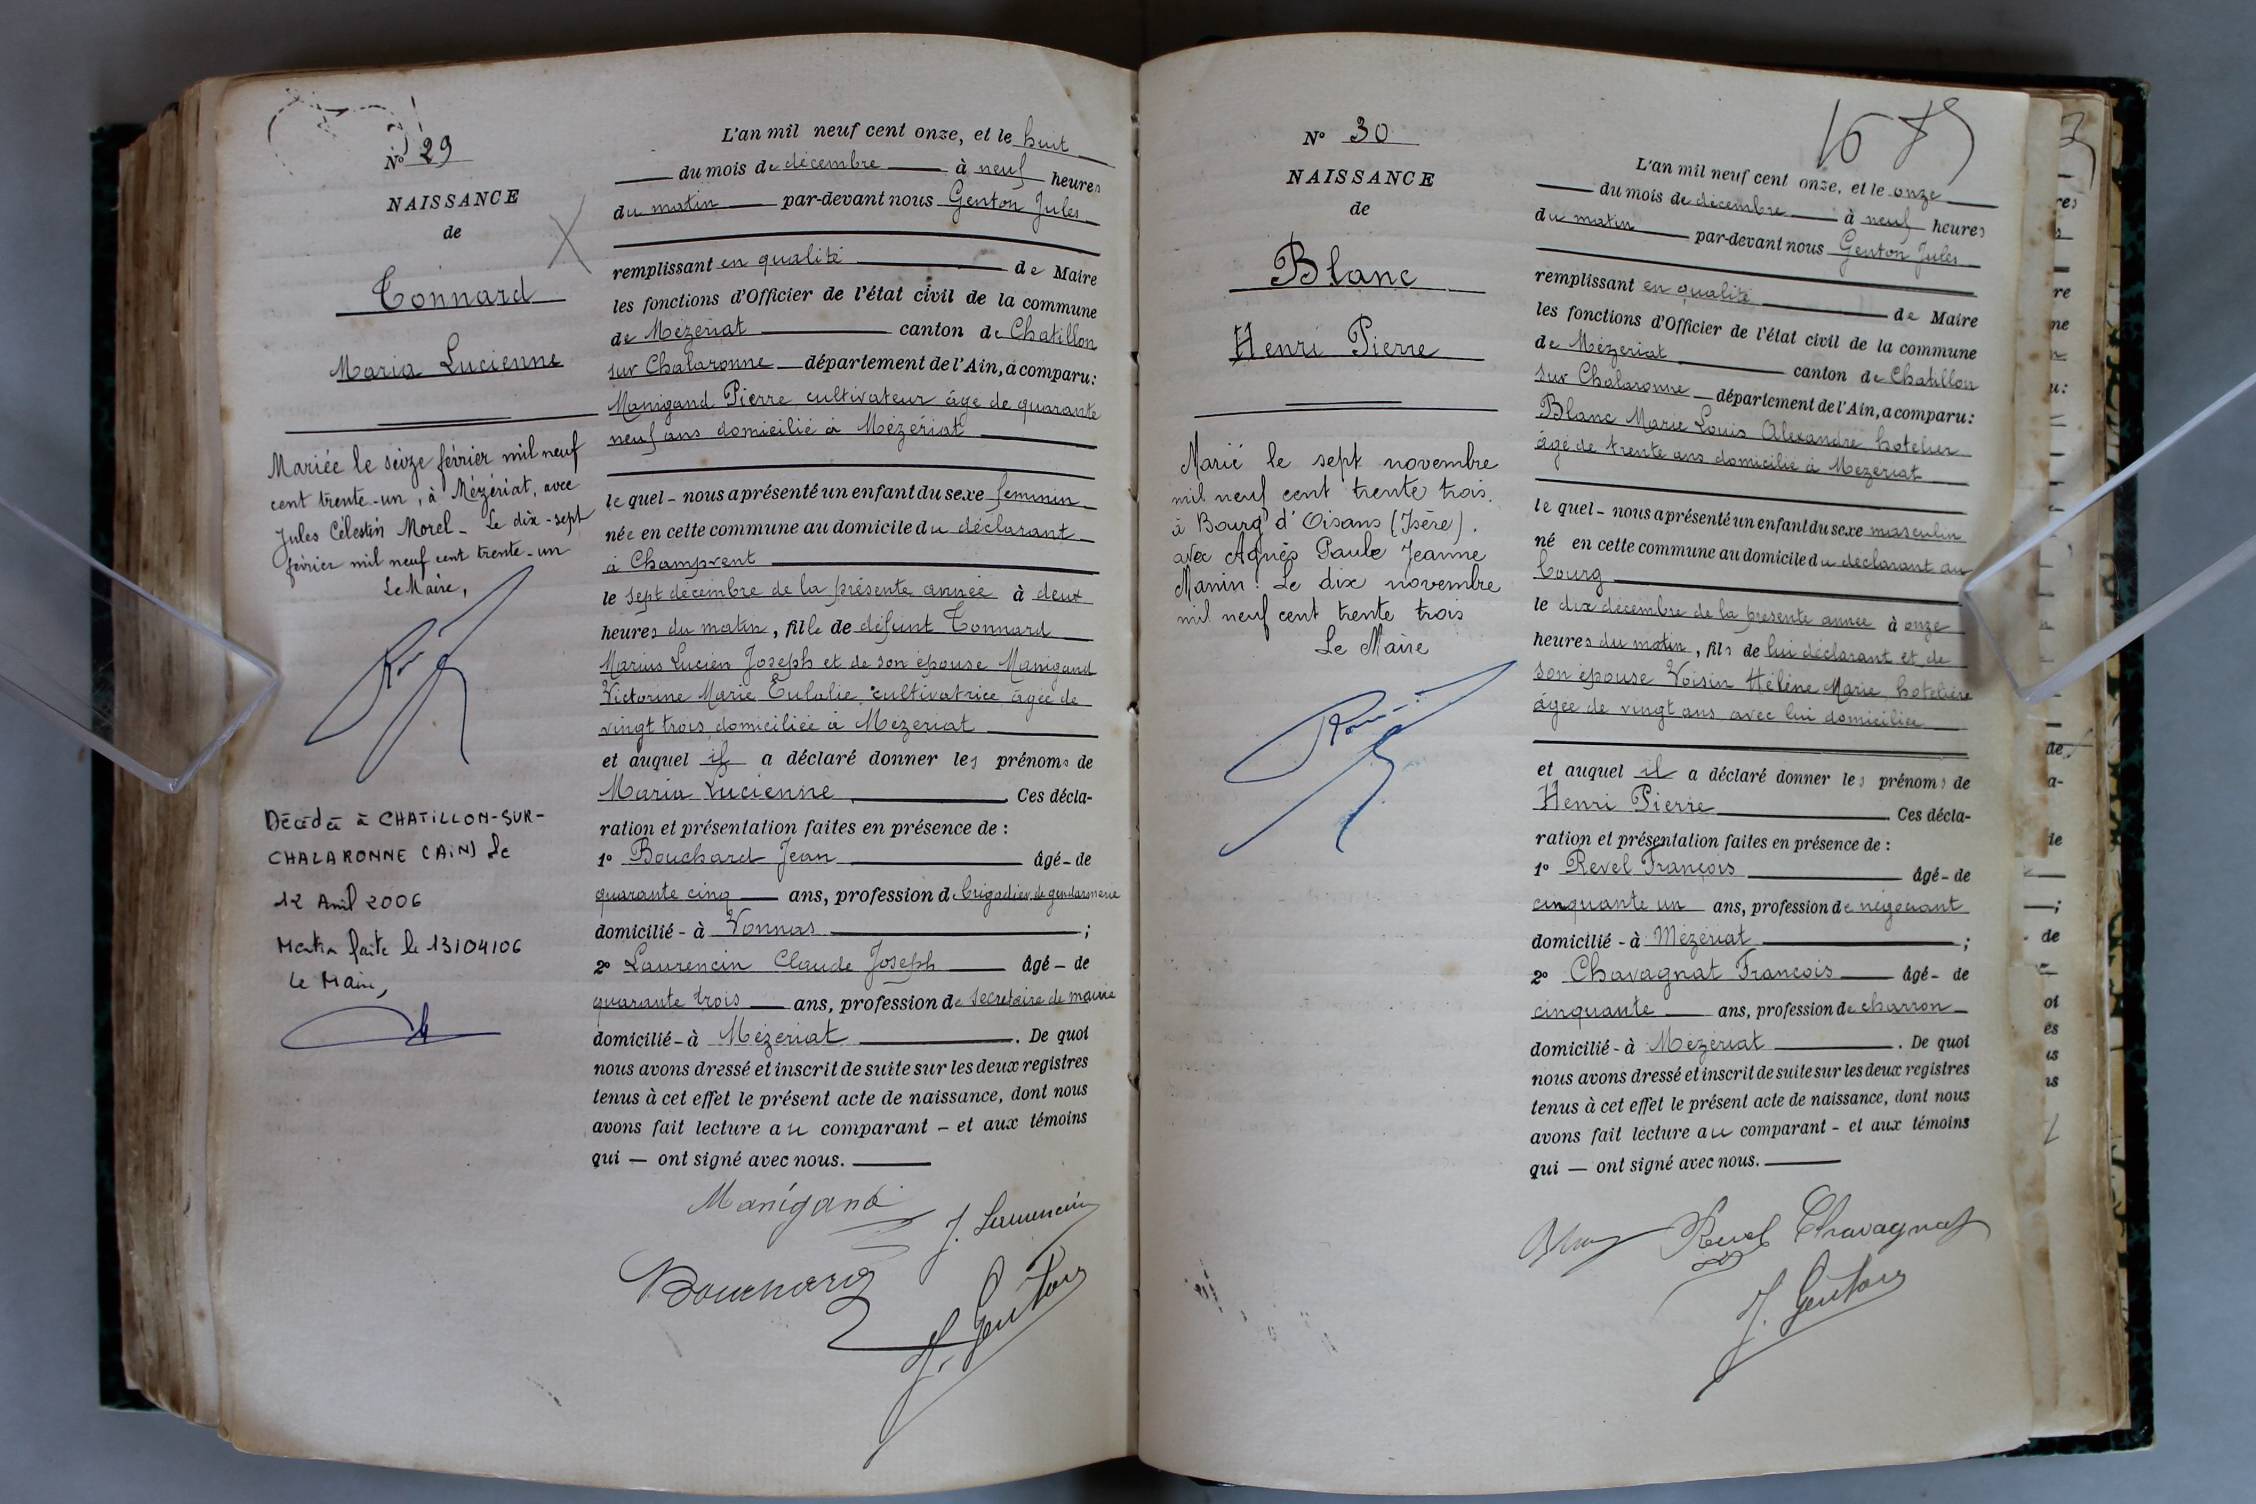 N° 29
NAISSANCE
de
Tonnard
Maria Lucienne
Mariée le seize février mil neuf
cent trente-un, à Mézériat, avec
Jules Célestin Morel - Le dix-sept
février mil neuf cent trente-un
Le Maire,
Décédée à CHATILLON-SUR-
CHALARONNE (AIN) le
12 Avril 2006
Mention faite le 13/04/06
Le Maire,
L'an mil neuf cent onze, et le huit
du mois de décembre à neuf heures
du matin par-devant nous Genton Jules
remplissant en qualité de Maire
les fonctions d'Officier de l'état civil de la commune
de Mézériat canton de Chatillon
sur Chalaronne département de l'Ain, a comparu:
Manigand Pierre cultivateur âgé de quarante
neuf ans domicilié à Mézériat
le quel - nous a présenté un enfant du sexe féminin
née en cette commune au domicile du déclarant
à Champvent
le sept décembre de la présente année à deux
heures du matin, fille de défunt Tonnard
Marius Lucien Joseph et de son épouse Manigand
Victorine Marie Eulalie cultivatrice âgée de
vingt trois domiciliée à Mézériat
et auquel il a déclaré donner les prénoms de
Maria Lucienne. Ces décla-
ration et présentation faites en présence de :
1° Bouchard Jean âgé - de
quarante cinq ans, profession de brigadier de gendarmerie
domicilié - à Vonnas ;
2° Laurencin Claude Joseph âgé - de
quarante trois ans, profession de secrétaire de mairie
domicilié - à Mézériat. De quoi
nous avons dressé et inscrit de suite sur les deux registres
tenus à cet effet le présent acte de naissance, dont nous
avons fait lecture au comparant - et aux témoins
qui — ont signé avec nous.
Manigand
J. Laurencin
Bouchard
J. Genton
N° 30
NAISSANCE
de
Blanc
Henri Pierre
Marié le sept novembre
mil neuf cent trente trois.
à Bourg d'Oisans (Isère).
avec Agnès Paule Jeanne
Manin. Le dix novembre
mil neuf cent trente trois
Le Maire
L'an mil neuf cent onze, et le onze
du mois de décembre à neuf heures
du matin par-devant nous Genton Jules
remplissant en qualité de Maire
les fonctions d'Officier de l'état civil de la commune
de Mézériat canton de Chatillon
sur Chalaronne département de l'Ain, a comparu:
Blanc Marie Louis Alexandre hôtelier
âgé de trente ans domicilié à Mézériat
le quel - nous a présenté un enfant du sexe masculin
né en cette commune au domicile du déclarant au
bourg
le dix décembre de la présente année à onze
heures du matin, fils de lui déclarant et de
son épouse Voisin Hélène Marie hôtelière
âgée de vingt ans avec lui domiciliée
et auquel il a déclaré donner les prénoms de
Henri Pierre. Ces décla-
ration et présentation faites en présence de :
1° Revel François âgé - de
cinquante un ans, profession de négociant
domicilié - à Mézériat ;
2° Chavagnat François âgé - de
cinquante ans, profession de charron
domicilié - à Mézériat. De quoi
nous avons dressé et inscrit de suite sur les deux registres
tenus à cet effet le présent acte de naissance, dont nous
avons fait lecture au comparant - et aux témoins
qui — ont signé avec nous.
Blanc Revel Chavagnat
J. Genton